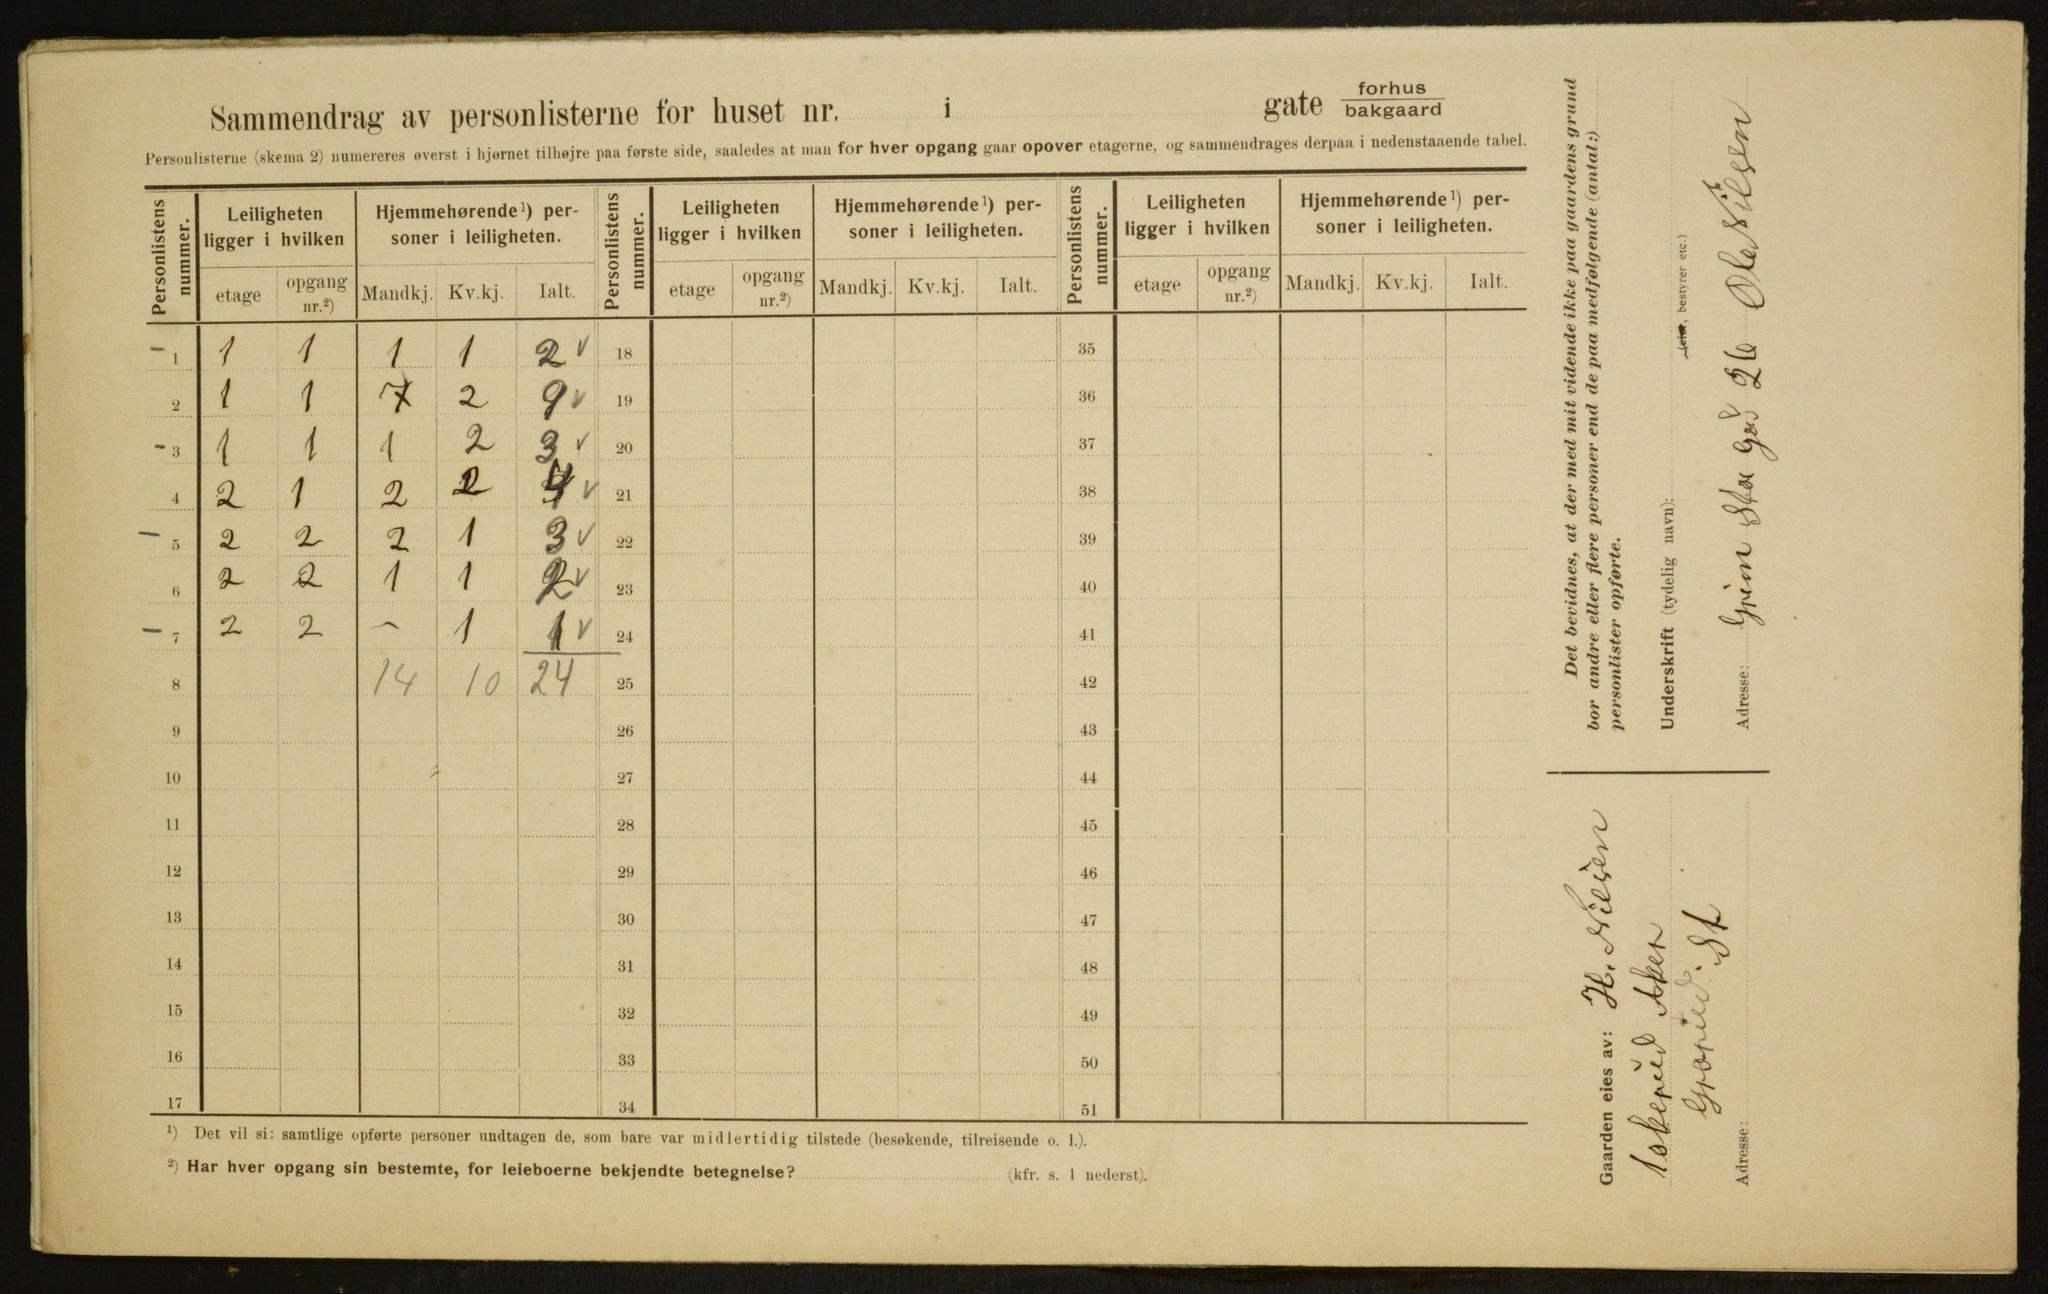 Sammendrag av personlisterne for huset nr. i gate forhus bakgaard
Personlisterne (skema 2) numereres øverst i hjørnet tilhøjre paa første side, saaledes at man for hver opgang gaar opover etagerne, og sammendrages derpaa i nedenstaaende tabel.
Personlistens nummer. Leiligheten ligger i hvilken Hjemmehørende¹) personer i leiligheten. Personlistens nummer. Leiligheten ligger i hvilken Hjemmehørende¹) personer i leiligheten. Personlistens nummer. Leiligheten ligger i hvilken Hjemmehørende¹) personer i leiligheten.
etage opgang nr.²) Mandkj. Kv.kj. Ialt. etage opgang nr.²) Mandkj. Kv.kj. Ialt. etage opgang nr.²) Mandkj. Kv.kj. Ialt.
1 1 1 1 1 2 18 35
2 1 1 7 2 9 19 36
3 1 1 1 2 3 20 37
4 2 1 2 2 4 21 38
5 2 2 2 1 3 22 39
6 2 2 1 1 2 23 40
7 2 2 – 1 1 24 41
8 14 10 24 25 42
9 26 43
10 27 44
11 28 45
12 29 46
13 30 47
14 31 48
15 32 49
16 33 50
17 34 51
¹) Det vil si: samtlige opførte personer undtagen de, som bare var midlertidig tilstede (besøkende, tilreisende o. l.).
²) Har hver opgang sin bestemte, for leieboerne bekjendte betegnelse? (kfr. s. 1 nederst).
Det bevidnes, at der med mit vidende ikke paa gaardens grund
bor andre eller flere personer end de paa medfølgende (antal:)
personlister opførte.
Underskrift (tydelig navn):
(eier, bestyrer etc.)
Ole Nilsen
Adresse: 26
Gaarden eies av: H. Nilsen
Aker
St
Adresse: